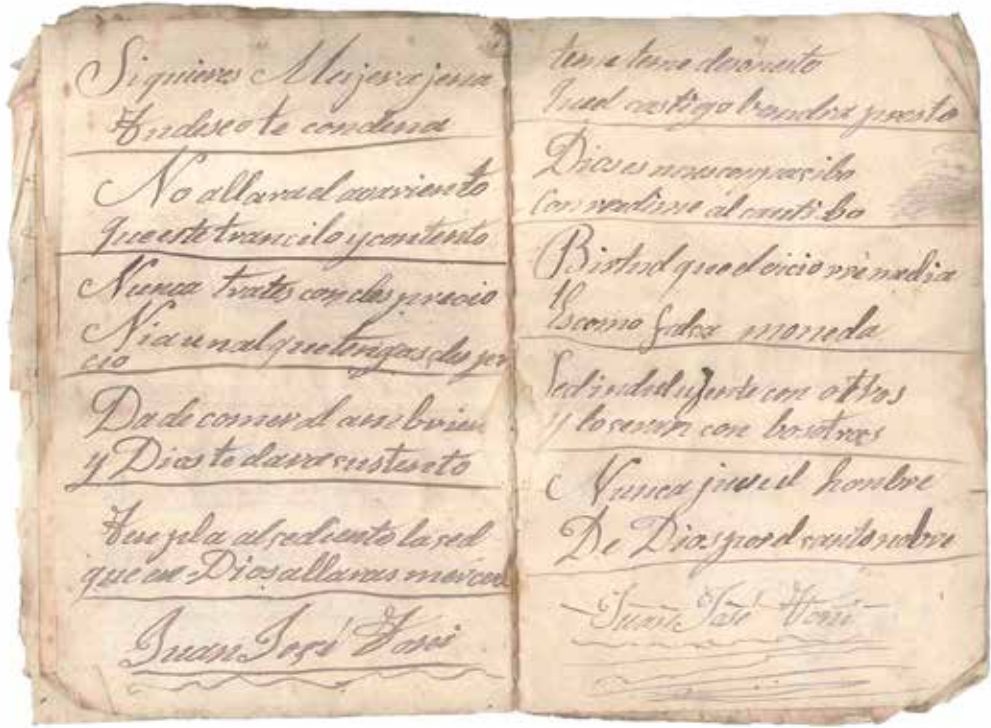 Si quieres Mujer ajena
Tu deseo te condena
No allara el avariento
Que este trancilo y contento
Nunca trates con desprecio
Ni aun al que tengas des pre
cio
Da de comer al ambrien
y Dios te dara sustento
Temp la al sediento la sed
que en Dios allaras merced
Juan José
teme teme desonesto
Que el castigo bendra presto
Dios es mui compacibo
Con redime al cautibo
Birtud que el vicio rremedia
Es como falsa moneda
Sed indulujente con ottros
y lo seran con bosotros
Nunca jure el honbre
De Dios por el santo nobre
Juan José